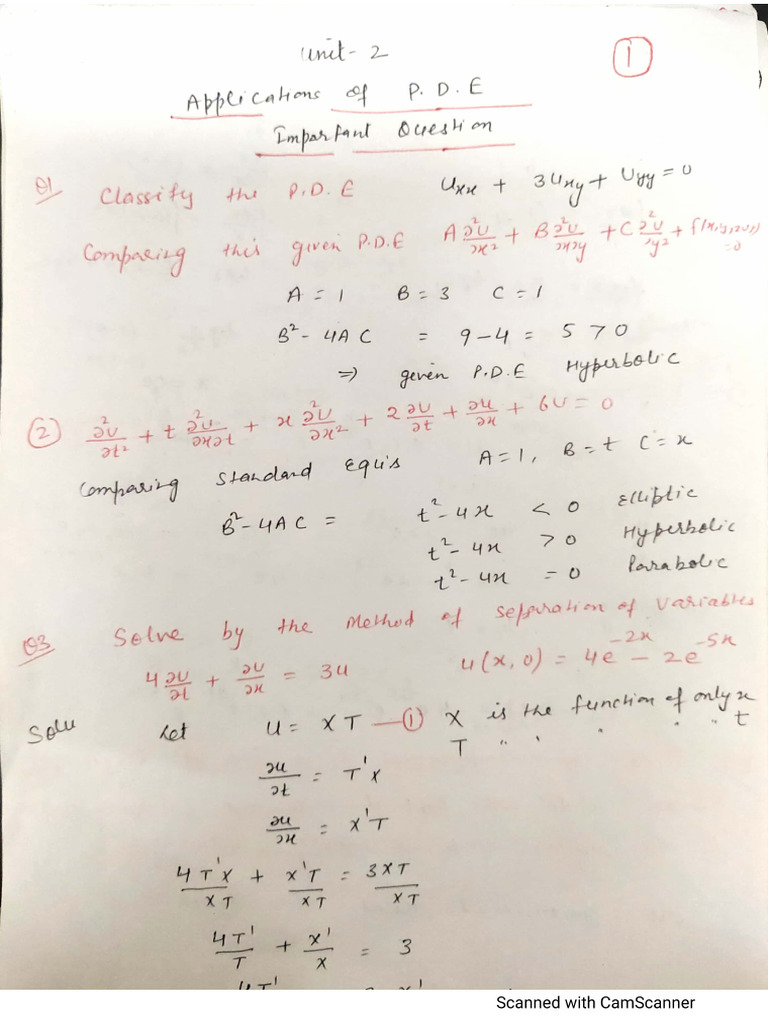 Unit - 2
1
Applications of P. D. E
Important Question
Q1 Classify the P.D.E Uxx + 3Uxy + Uyy = 0
Comparing this given P.D.E A ∂²U/∂x² + B ∂²U/∂x∂y + C ∂²U/∂y² + f(x,y,z,u,) = 0
A = 1 B = 3 C = 1
B² - 4AC = 9 - 4 = 5 > 0
⇒ given P.D.E Hyperbolic
(2) ∂²U/∂t² + t ∂²U/∂x∂t + x ∂²U/∂x² + 2 ∂U/∂t + ∂u/∂x + 6U = 0
Comparing Standard Equis A = 1, B = t C = x
B² - 4AC = t² - 4x < 0 Elliptic
t² - 4x > 0 Hyperbolic
t² - 4x = 0 Parabolic
Q3 Solve by the Method of Separation of Variables
4 ∂U/∂t + ∂U/∂x = 3u u(x, 0) = 4e^-2x - 2e^-5x
Solu Let U = X T — (1) X is the function of only x
T " " " " " t
∂u/∂t = T'X
∂u/∂x = X'T
4T'X/XT + X'T/XT = 3XT/XT
4T'/T + X'/X = 3
Scanned with CamScanner